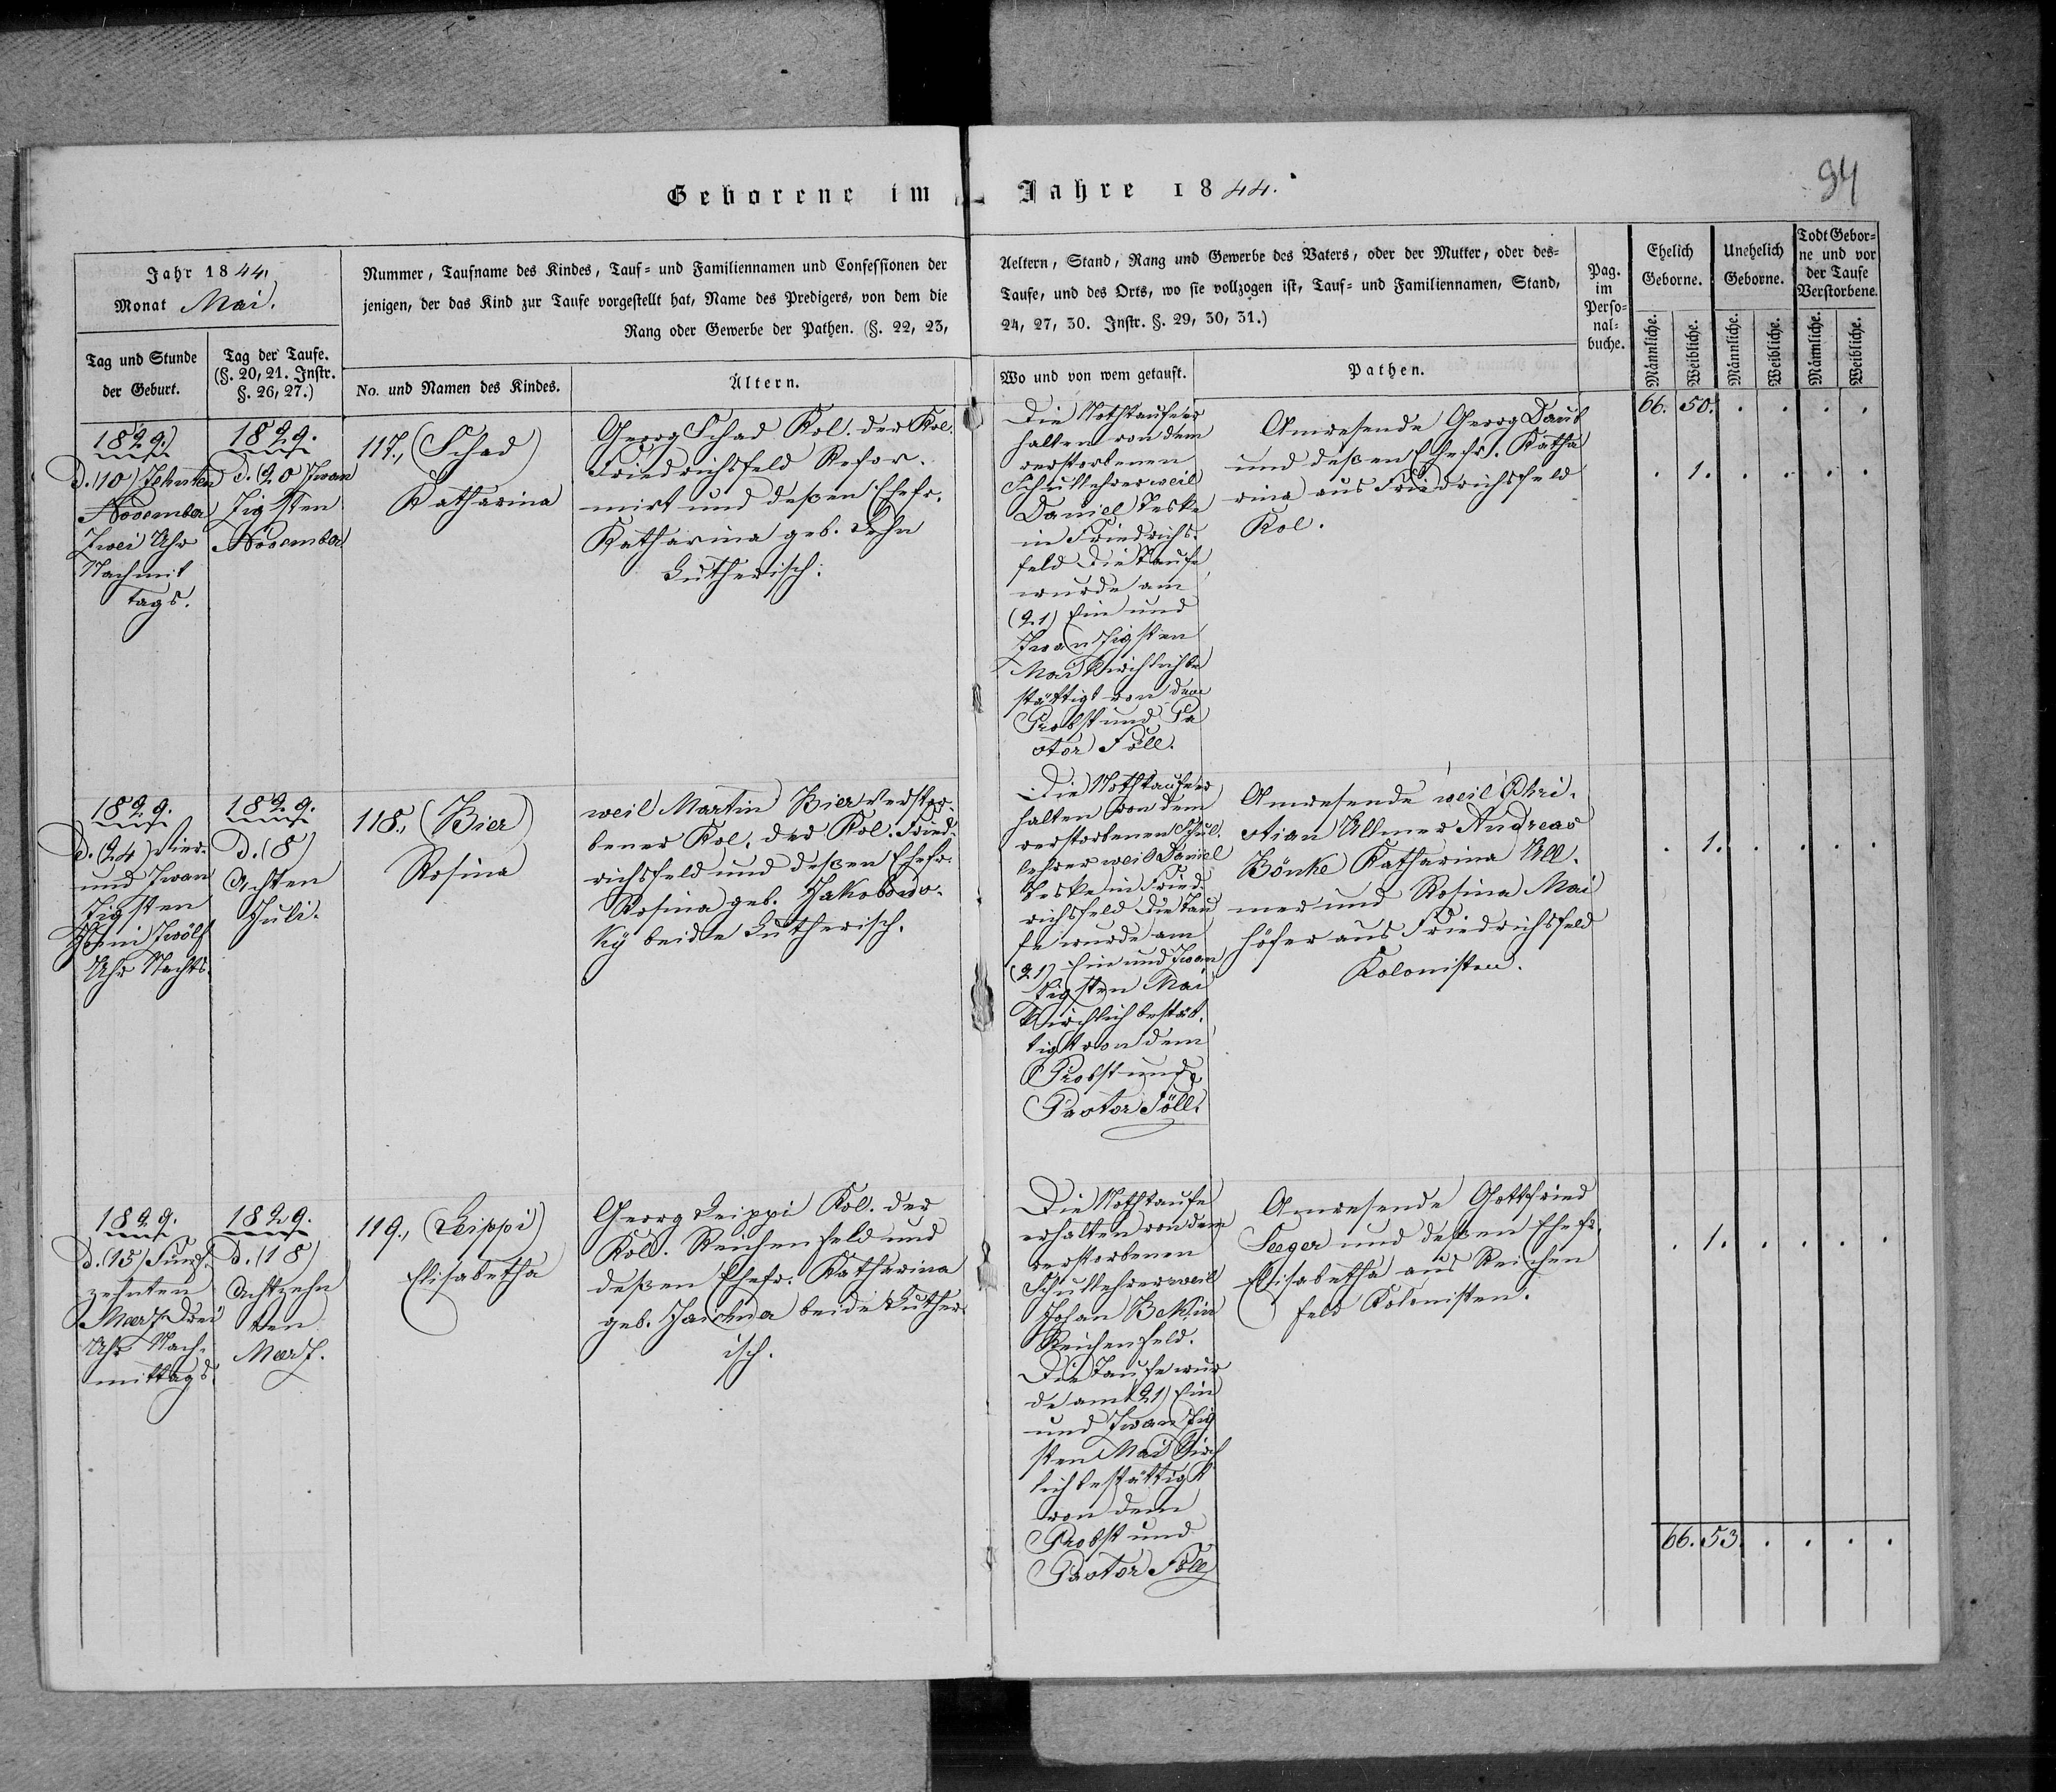 94
Geborene im Jahre 1844.
Jahr 1844.
Monat Mai.
Nummer, Taufname des Kindes, Tauf= und Familiennamen und Confessionen der
Aeltern, Stand, Rang und Gewerbe des Vaters, oder der Mutter, oder des=
jenigen, der das Kind zur Taufe vorgestellt hat, Name des Predigers, von dem die
Taufe, und des Orts, wo sie vollzogen ist, Tauf= und Familiennamen, Stand,
Rang oder Gewerbe der Pathen. (§. 22, 23,
24, 27, 30. Instr. §. 29, 30, 31.)
Pag.
im
Perso=
nal=
buche.
Ehelich
Geborne.
Unehelich
Geborne.
Todt Gebor=
ne und vor
der Taufe
Verstorbene.
Männliche.
Weibliche.
Männliche.
Weibliche.
Männliche.
Weibliche.
Tag und Stunde
der Geburt.
Tag der Taufe.
(§. 20, 21. Instr.
§. 26, 27.)
No. und Namen des Kindes.
Ältern.
Wo und von wem getauft.
Pathen.
66. 50. . . . .
1829.
d. (10) Zehnten
November
Zwei Uhr
Nachmit
tags.
1829.
d. (20) Zwan
zigsten
November
117., (Schad)
Katharina
Georg Schad Kol. der Kol.
Friedrichsfeld Refor-
mirt und deßen Ehefr.
Katharina geb. Dehn
Lutherisch.
Die Nothtaufe er
halten von dem
verstorbenen
Schullehrer weil
Daniel Teske
in Friedrichs-
feld Die Taufe
wurde am
(21) Ein und
Zwanzigsten
Mai Kirchlich be
stättigt von dem
Probst und Pa
stor Föll.
Anwesende Georg Daub
und deßen Ehefr. Katha
rina aus Friedrichsfeld
Kol.
. 1. . . . .
1829.
d. (24) Vier-
und Zwan
zigsten
Juni Zwölf
Uhr Nachts.
1829.
d. (8)
Achten
Juli.
118., (Bier)
Rosina
weil Martin Bier verstor-
bener Kol. der Kol. Fried-
richsfeld und deßen Ehefr.
Rosina geb. Jakobows-
ky beide Lutherisch.
Die Nothtaufe er
halten von dem
verstorbenen Schul-
lehrer weil Daniel
Teske in Fried-
richsfeld Die Tau
fe wurde am
(21) Ein und Zwan
zigsten Mai
Kirchlich bestät-
tigt von dem
Probst und
Pastor Föll.
Anwesende weil Chri-
stian Ullmer Andreas
Bönke Katharina Ull-
mer und Rosina Mai
höfer aus Friedrichsfeld
Kolonisten.
. 1. . . . .
1829.
d. (15) Funf-
zehnten
Maerz Drei
Uhr Nach-
mittags.
1829.
d. (18)
Achtzehn
ten
Maerz.
119., (Leippi)
Elisabetha
Georg Leippi Kol. der
Kol. Reichenfeld und
deßen Ehefr. Katharina
beide Luther
isch.
Die Nothtaufe
erhalten von dem
verstorbenen
Schullehrer weil
Johan Bek in
Reichenfeld.
Die Taufe wur
de am (21) Ein
und Zwanzig
sten Mai Kirch
lich bestättigt
von dem
Probst und
Pastor Föll
Anwesende Gottfried
Seeger und deßen Ehefr.
Elisabetha aus Reichen
feld Kolonisten.
. 1. . . . .
66. 53. . . . .